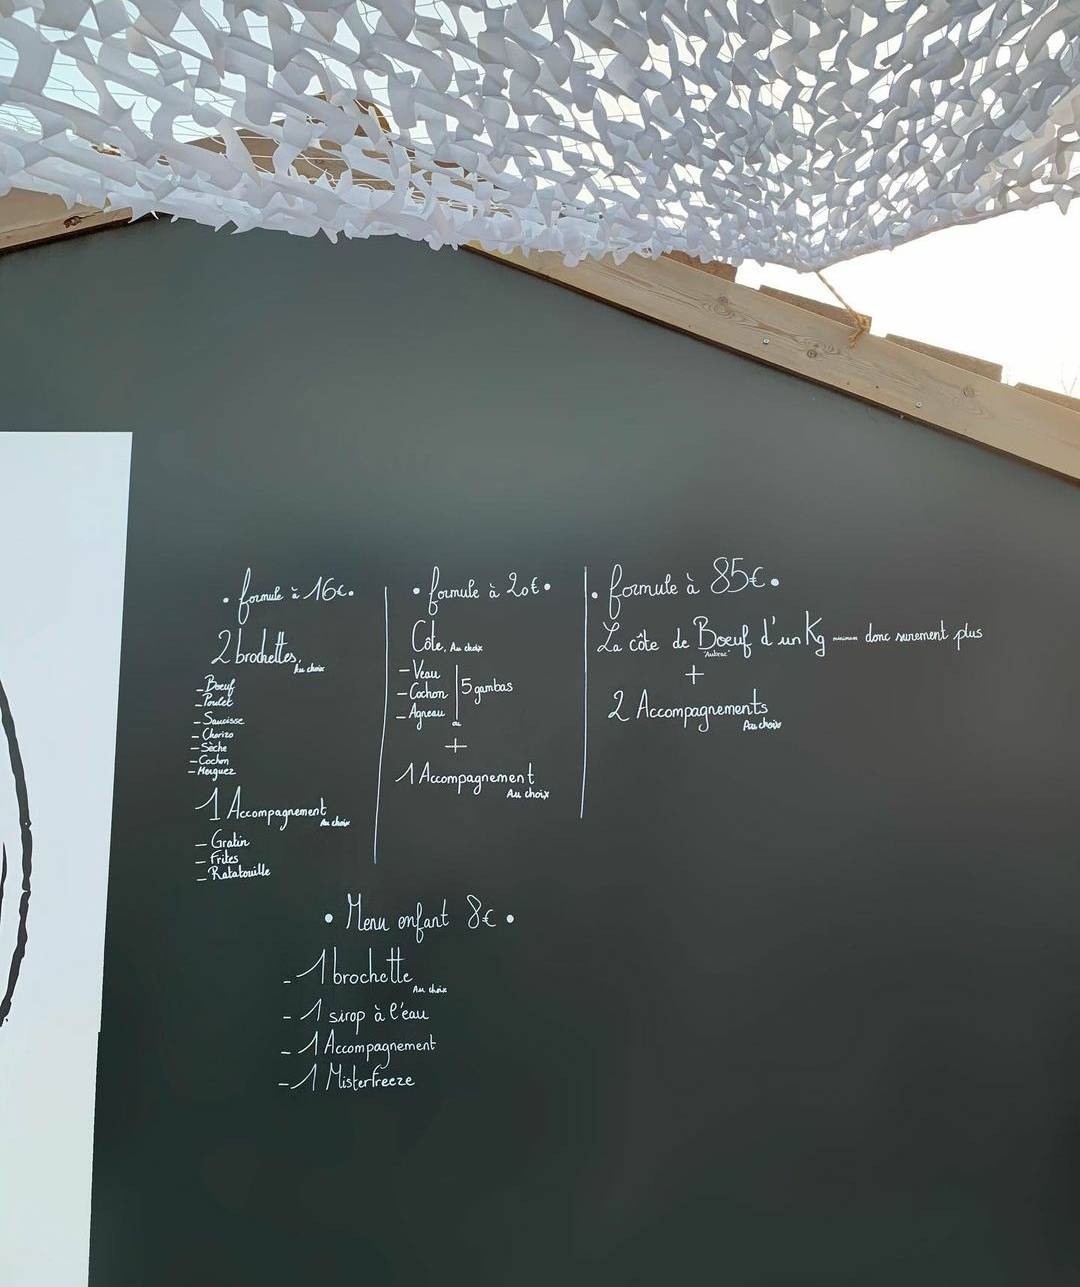 • formule à 16€.
2 brochettes, Au choix
- Boeuf
- Poulet
- Saucisse
- Chorizo
- Sèche
- Cochon
- Merguez
1 Accompagnement Au choix
- Gratin
- Frites
- Ratatouille
• formule à 20€•
Côte, Au choix
- Veau
- Cochon
- Agneau
ou
5 gambas
+
1 Accompagnement
Au choix
• formule à 85€•
La côte de Boeuf d'un Kg minimum donc surement plus
"Aubrac"
+
2 Accompagnements
Au choix
• Menu enfant 8€ •
- 1 brochette
Au choix
- 1 sirop à l'eau
- 1 Accompagnement
- 1 Misterfreeze